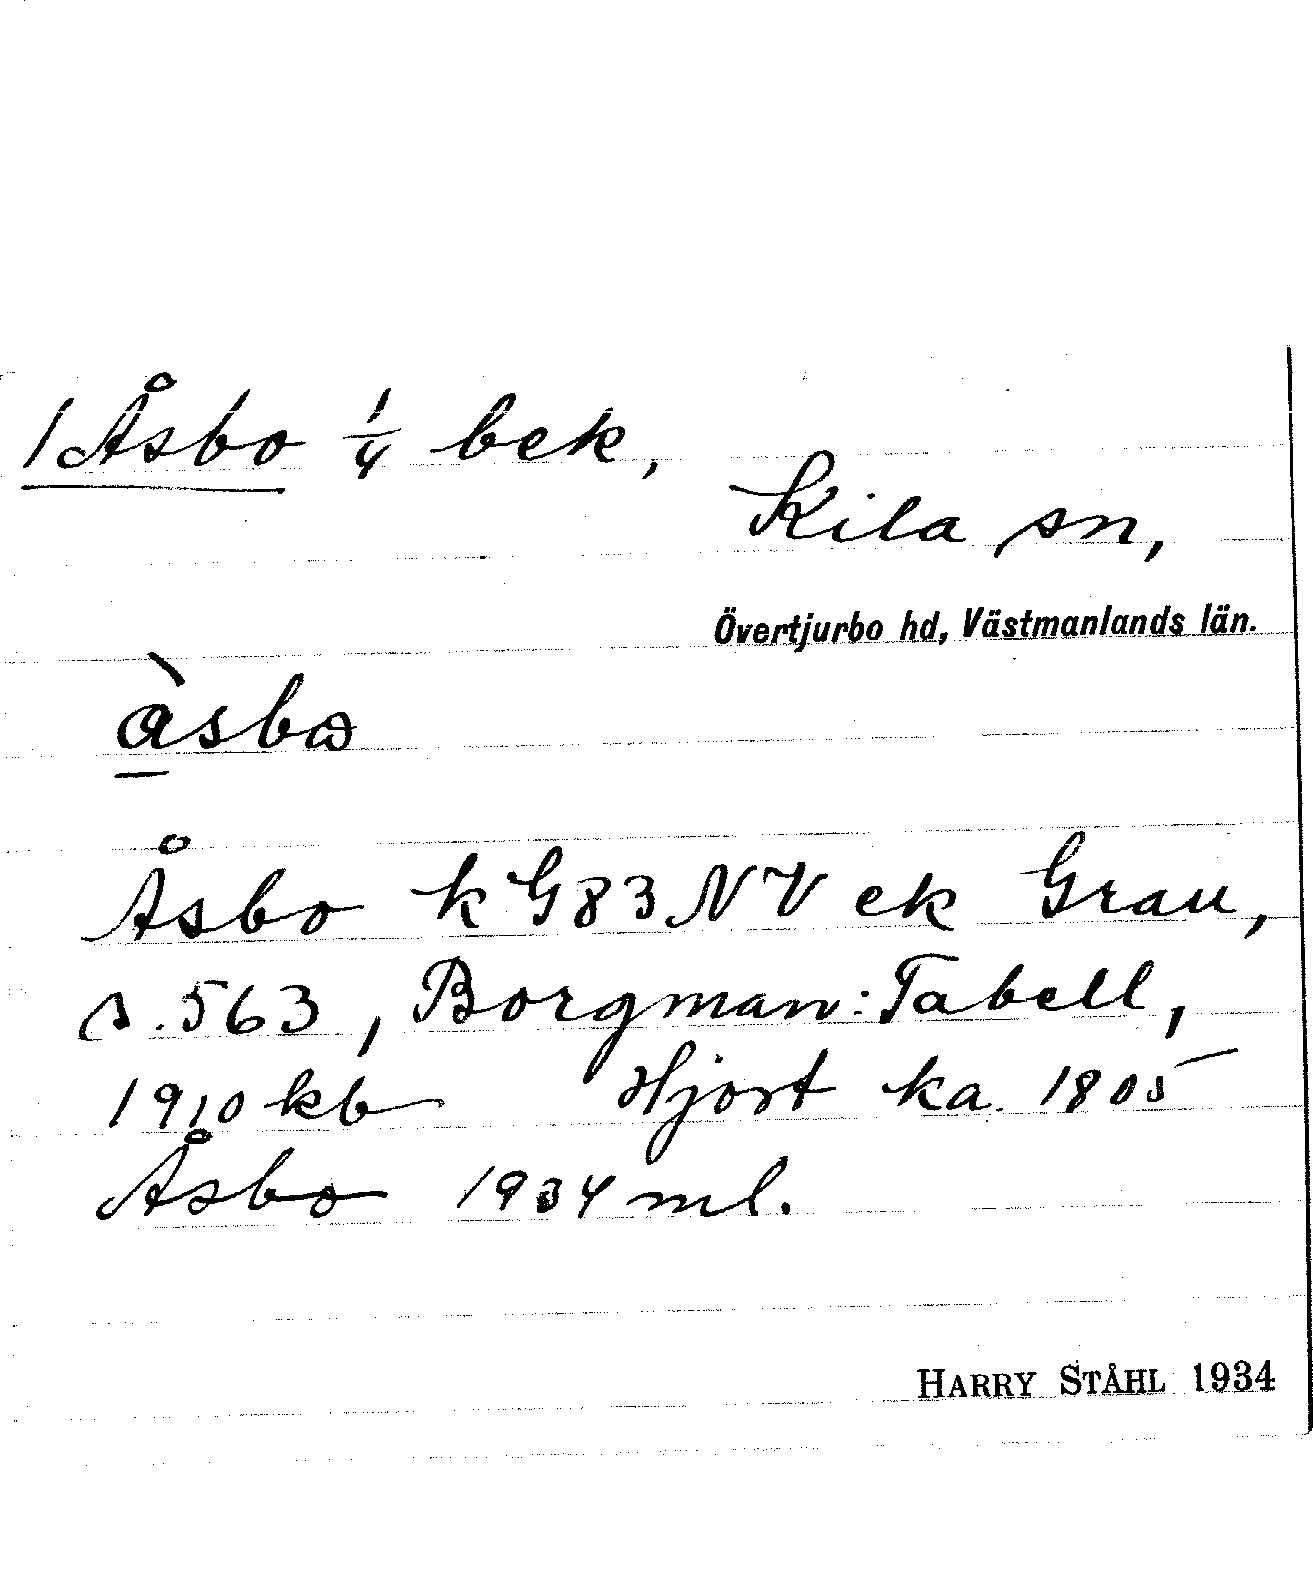 1 Åsbo 1/4 bek,
Kila sn,
Övertjurbo hd, Västmanlands län.
Åsbo k G83NV ek Grau,
s. 563, Borgman: Tabell,
1910 kb Hjort ka. 1805
Åsbo 1934 ml.
HARRY STÅHL 1934